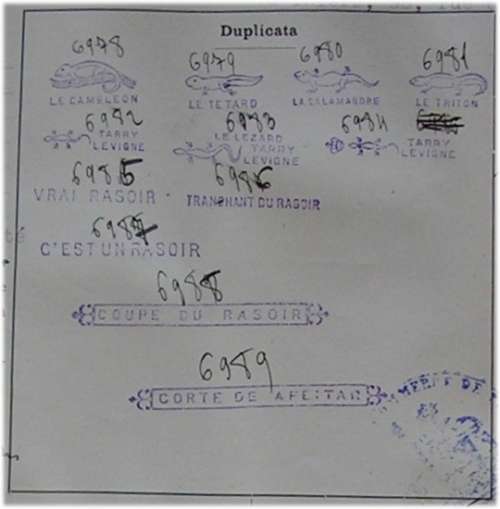 Duplicata
6978 6979 6980 6981
LE CAMELEON LE TETARD LA SALAMANDRE LE TRITON
6982 6983 6984
TARRY LEVIGNE
LE LEZARD TARRY LEVIGNE
TARRY LEVIGNE
6985 6986
VRAI RASOIR TRANCHANT DU RASOIR
6987
C'EST UN RASOIR
6988
COUPE DU RASOIR
6989
CORTE DE AFEITAR